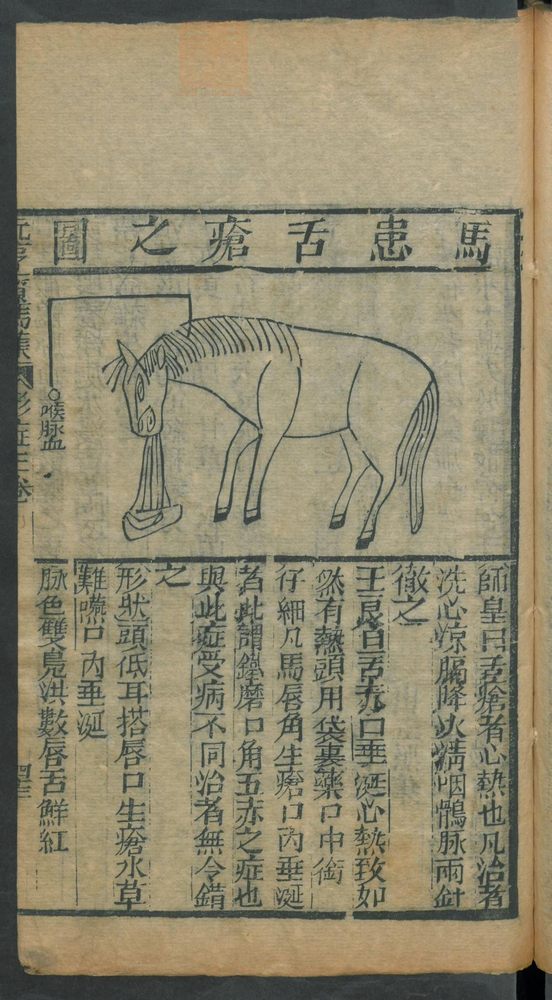 馬患舌瘡之圖
喉脉血
師皇曰舌瘡者心熱也凡治者
洗心凉膈降火清咽鶻脉兩針
徹之
王良曰舌赤口垂涎心熱致如
然有熱頭用袋裏藥口中銜
仔細凡馬唇角生瘡口内垂涎
者此謂鑵磨口角五赤之症也
與此症受病不同治者無令錯
之
形狀頭低耳搭唇口生瘡水草
難嚥口内垂涎
脉色雙鳧洪數唇舌鮮紅